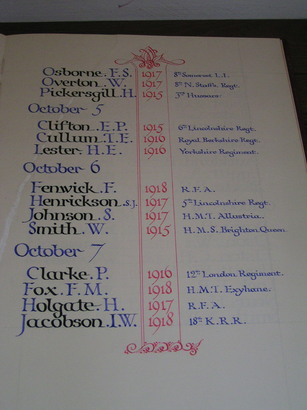 Osborne. F. S. 1917 8th Somerset L.I.
Overton. W. 1917 5th N. Staffs. Regt.
Pickersgill. H. 1915 3rd Hussars.
October 5
Clifton. E. P. 1915 6th Lincolnshire Regt.
Cullum. T. E. 1916 Royal Berkshire Regt.
Lester. H. E. 1916 Yorkshire Regiment.
October 6
Fenwick. F. 1918 R.F.A.
Henrickson. S.J. 1917 5th Lincolnshire Regt.
Johnson. S. 1917 H.M.T.
Smith. W. 1915 H.M.S. Brighton Queen.
October 7
Clarke. P. 1916 12th London Regiment.
Fox. F. M. 1918 H.M.T.
Holgate. H. 1917 R.F.A.
Jacobson. I. W. 1918 18th K.R.R.